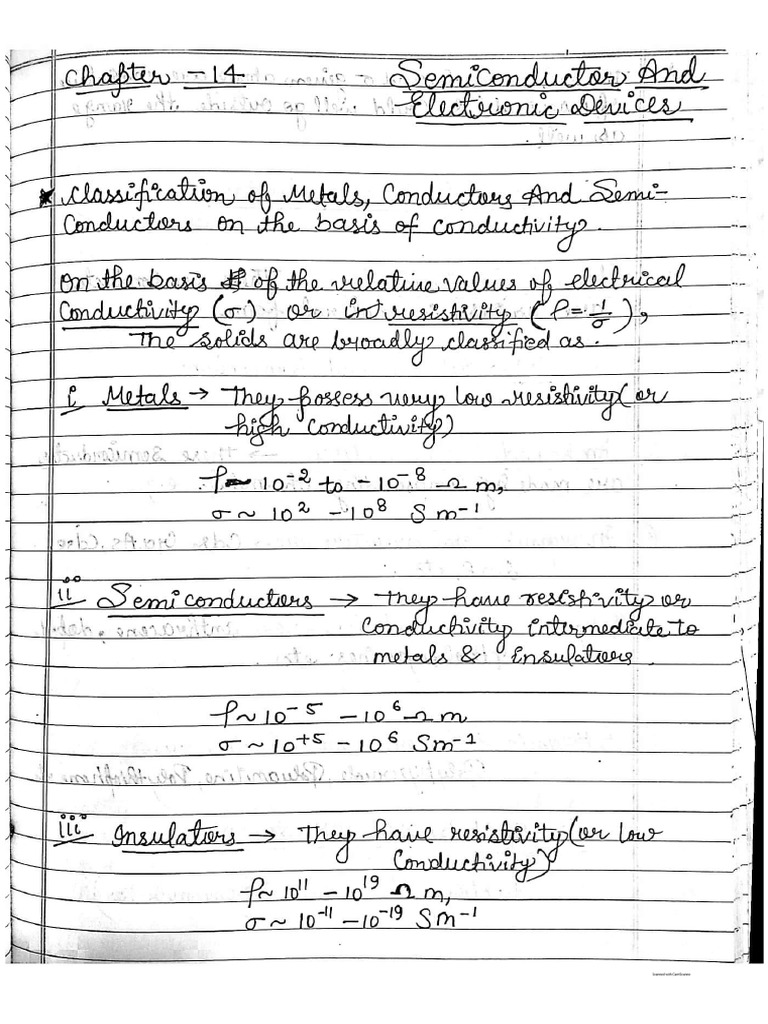 Chapter - 14 Semiconductor And
Electronic Devices
* Classification of Metals, Conductors And Semi-
Conductors on the basis of conductivity.
on the basis of the relative values of electrical
Conductivity (σ) or int resistivity (ρ = 1/σ),
The solids are broadly classified as.
i Metals → They possess very low resistivity (or
high Conductivity)
ρ ~ 10⁻² to - 10⁻⁸ Ω m,
σ ~ 10² - 10⁸ S m⁻¹
ii Semiconductors → They have resistivity or
Conductivity intermediate to
metals & insulators.
ρ ~ 10⁻⁵ - 10⁶ Ω m
σ ~ 10⁺⁵ - 10⁶ Sm⁻¹
iii Insulators → They have resistivity (or low
Conductivity)
ρ ~ 10¹¹ - 10¹⁹ Ω m,
σ ~ 10⁻¹¹ - 10⁻¹⁹ S m⁻¹
Scanned with CamScanner